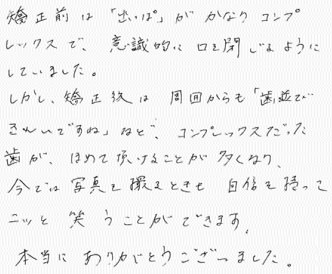 矯正前は「出っぱ」がかなりコンプ
レックスで、意識的に口を閉じるように
していました。
しかし、矯正後は周囲からも「歯並び
きれいですね」など、コンプレックスだった
歯が、ほめて頂けることが多くなり、
今では写真を撮るときも自信を持って
ニッと笑うことができます。
本当にありがとうございました。